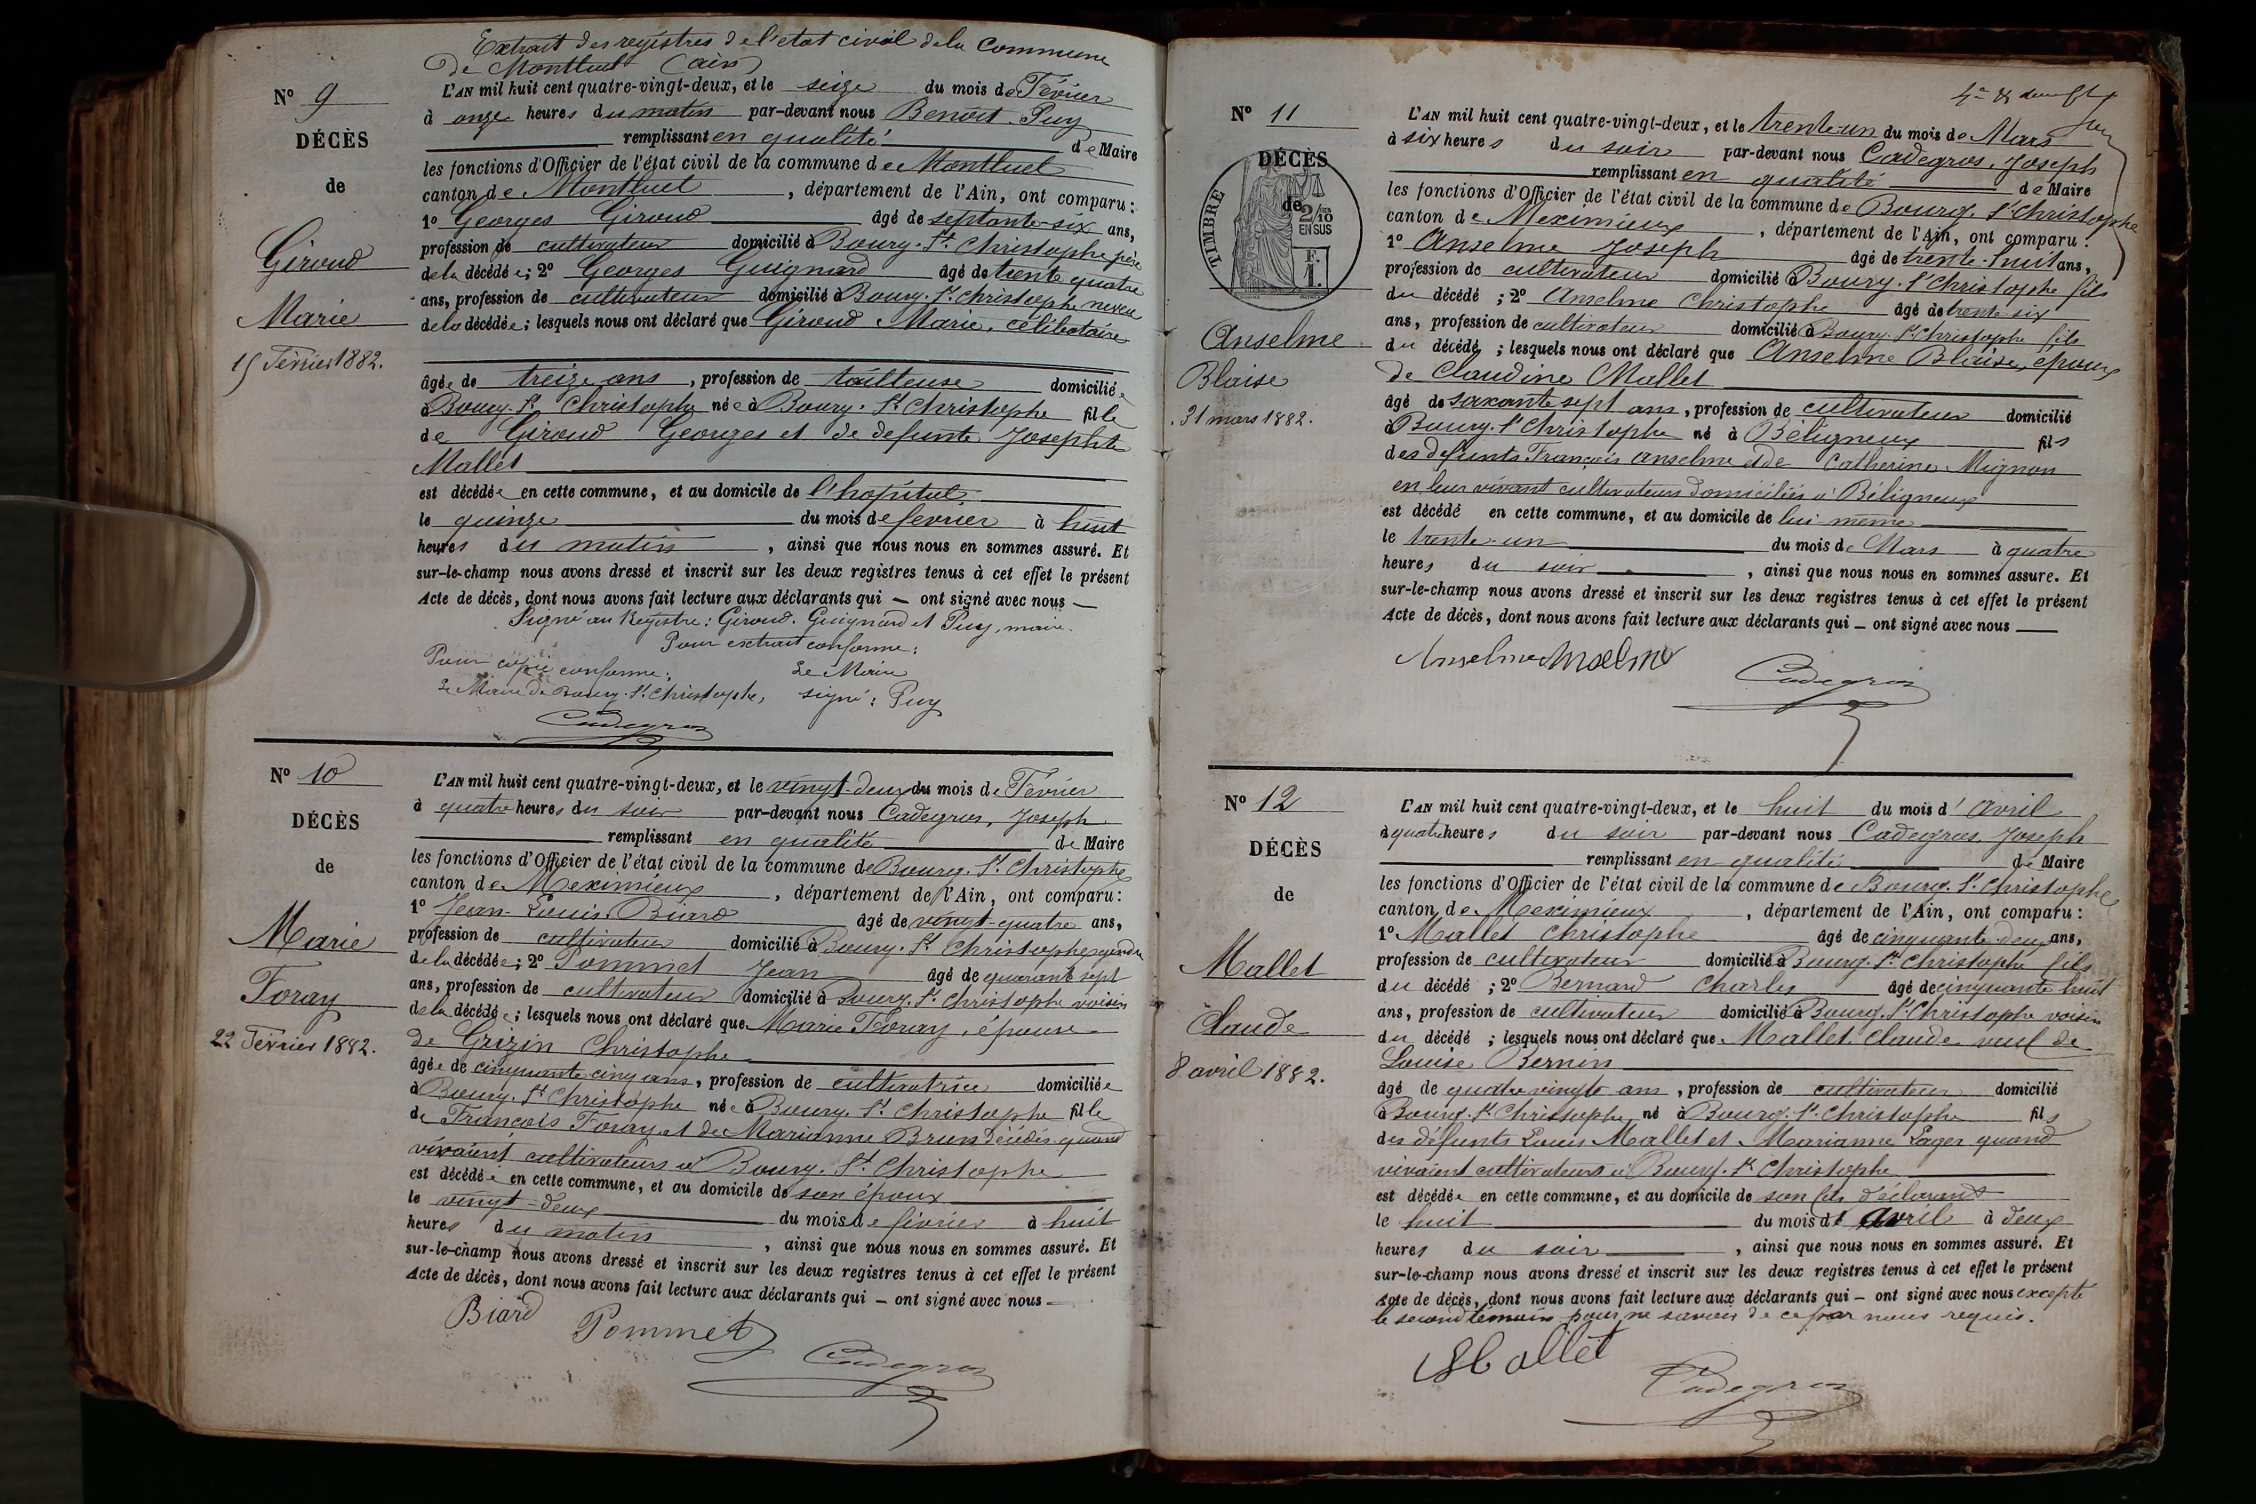 Extrait des registres de l'état civil de la Commune
de Montluel (Ain)
N° 9
DÉCÈS
de
Giroud
Marie
15 Février 1882.
L'AN mil huit cent quatre-vingt-deux, et le seize du mois de Février
à onze heures du matin par-devant nous Benoit Puy
remplissant en qualité de Maire
les fonctions d'Officier de l'état civil de la commune de Montluel
canton de Montluel, département de l'Ain, ont comparu :
1° Georges Giroud âgé de septante-six ans,
profession de cultivateur domicilié à Bourg-St Christophe père
de la décédée ; 2° Georges Guignard âgé de trente quatre
ans, profession de cultivateur domicilié à Bourg-St Christophe neveu
de la décédée ; lesquels nous ont déclaré que Giroud Marie, célibataire
âgée de treize ans, profession de tailleuse domiciliée
à Bourg-St Christophe née à Bourg-St Christophe fille
de Giroud Georges et de defunte Josephte
Mallet
est décédée en cette commune, et au domicile de l'hopital
le quinze du mois de fevrier à huit
heures du matin, ainsi que nous nous en sommes assuré. Et
sur-le-champ nous avons dressé et inscrit sur les deux registres tenus à cet effet le présent
Acte de décès, dont nous avons fait lecture aux déclarants qui ont signé avec nous
Signé au Registre : Giroud. Guignard et Puy, maire.
Pour extrait conforme :
Pour copie conforme : Le Maire
Le Maire de Bourg-St Christophe, signé : Puy
Cadegros
N° 10
DÉCÈS
de
Marie
Foray
22 Février 1882.
L'AN mil huit cent quatre-vingt-deux, et le vingt-deux du mois de Février
à quatre heures du soir par-devant nous Cadegros, Joseph
remplissant en qualité de Maire
les fonctions d'Officier de l'état civil de la commune de Bourg-St Christophe
canton de Meximieux, département de l'Ain, ont comparu :
1° Jean-Louis Biard âgé de vingt-quatre ans,
profession de cultivateur domicilié à Bourg-St Christophe gendre
de la décédée ; 2° Pommet Jean âgé de quarante sept
ans, profession de cultivateur domicilié à Bourg-St Christophe voisin
de la décédée ; lesquels nous ont déclaré que Marie Foray, épouse
de Grizin Christophe
âgée de cinquante cinq ans, profession de cultivatrice domiciliée
à Bourg-St Christophe née à Bourg-St Christophe fille
de François Foray et de Marianne Brun décédés quand
vivaient cultivateurs à Bourg-St Christophe
est décédée en cette commune, et au domicile de son époux
le vingt-deux du mois de février à huit
heures du matin, ainsi que nous nous en sommes assuré. Et
sur-le-champ nous avons dressé et inscrit sur les deux registres tenus à cet effet le présent
Acte de décès, dont nous avons fait lecture aux déclarants qui ont signé avec nous
Biard Pommet
Cadegros
N° 11
DÉCÈS
de
TIMBRE
2/10
EN SUS
F.
1.
Anselme
Blaise
31 mars 1882.
L'AN mil huit cent quatre-vingt-deux, et le trente-un du mois de Mars
à six heures du soir par-devant nous Cadegros, Joseph
remplissant en qualité de Maire
les fonctions d'Officier de l'état civil de la commune de Bourg-St Christophe
canton de Meximieux, département de l'Ain, ont comparu :
1° Anselme Joseph âgé de trente-huit ans,
profession de cultivateur domicilié à Bourg-St Christophe fils
du décédé ; 2° Anselme Christophe âgé de trente six
ans, profession de cultivateur domicilié à Bourg-St Christophe fils
du décédé ; lesquels nous ont déclaré que Anselme Blaise, époux
de Claudine Mallet
âgé de soixante sept ans, profession de cultivateur domicilié
à Bourg-St Christophe né à Béligneux fils
des defunts François Anselme et de Catherine Mignon
en leur vivant cultivateurs domiciliés à Béligneux
est décédé en cette commune, et au domicile de lui même
le trente-un du mois de Mars à quatre
heures du soir, ainsi que nous nous en sommes assuré. Et
sur-le-champ nous avons dressé et inscrit sur les deux registres tenus à cet effet le présent
Acte de décès, dont nous avons fait lecture aux déclarants qui ont signé avec nous
Anselme Anselme
Cadegros
N° 12
DÉCÈS
de
Mallet
Claude
8 avril 1882.
L'AN mil huit cent quatre-vingt-deux, et le huit du mois d'Avril
à quatre heures du soir par-devant nous Cadegros Joseph
remplissant en qualité de Maire
les fonctions d'Officier de l'état civil de la commune de Bourg-St Christophe
canton de Meximieux, département de l'Ain, ont comparu :
1° Mallet Christophe âgé de cinquante-deux ans,
profession de cultivateur domicilié à Bourg-St Christophe fils
du décédé ; 2° Bernard Charles âgé de cinquante huit
ans, profession de cultivateur domicilié à Bourg-St Christophe voisin
du décédé ; lesquels nous ont déclaré que Mallet Claude veuf de
Louise Bernin
âgé de quatre vingts ans, profession de cultivateur domicilié
à Bourg-St Christophe né à Bourg-St Christophe fils
des défunts Louis Mallet et Marianne Lager quand
vivaient cultivateurs à Bourg-St Christophe
est décédé en cette commune, et au domicile de son fils déclarant
le huit du mois d'avril à deux
heures du soir, ainsi que nous nous en sommes assuré. Et
sur-le-champ nous avons dressé et inscrit sur les deux registres tenus à cet effet le présent
Acte de décès, dont nous avons fait lecture aux déclarants qui ont signé avec nous excepté
le second témoin pour ne savoir de ce par nous requis.
Mallet
Cadegros